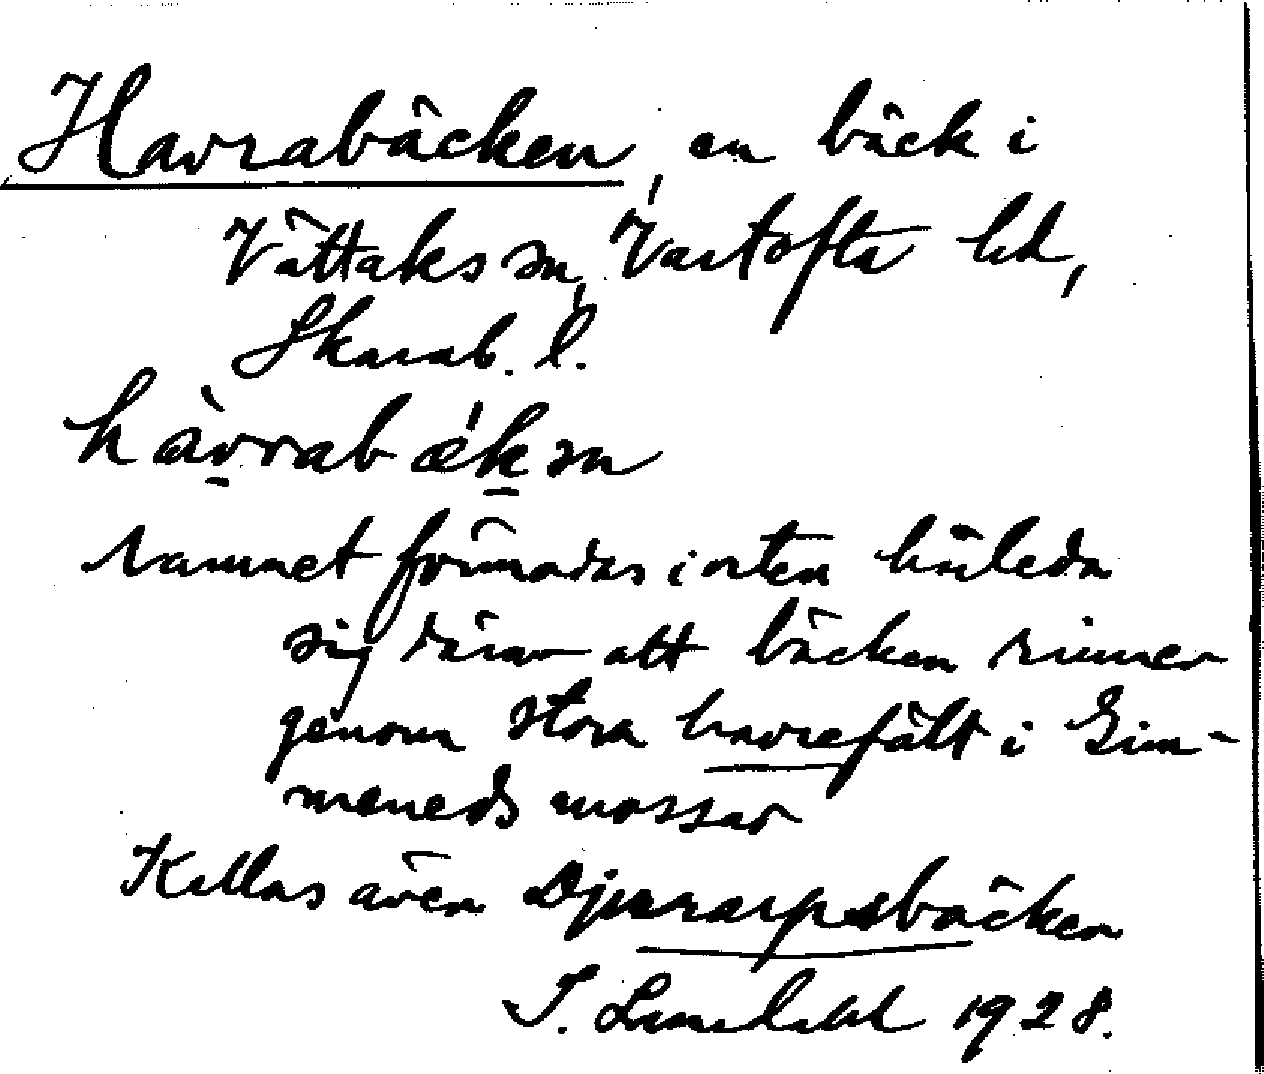 Havrabäcken, en bäck i
Vättaks sn, Vartofta hd,
Skarab. l.
hàvrabǽksn
Namnet förmodas i orten härleda
sig därav att bäcken rinner
genom stora havrefält i Gim-
meneds mossar
Kallas även Djurarpsbäcken
I. Lundahl 1928.